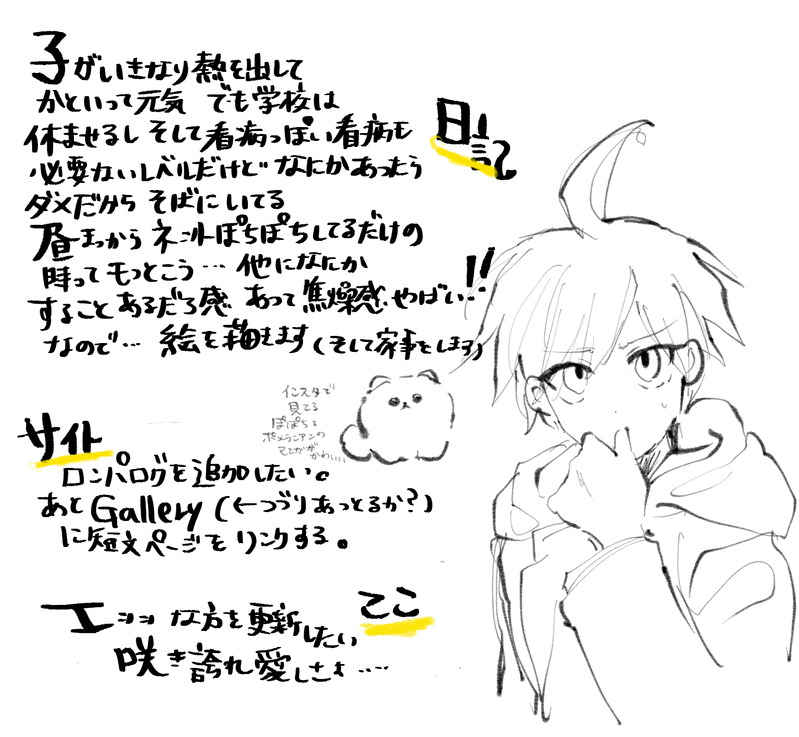 日記
子がいきなり熱を出して
かといって元気 でも学校は
休ませるし そして看病っぽい看病も
必要ないレベルだけど なにかあったら
ダメだから そばにいてる
昼まっから ネットぽちぽちしてるだけの
時って もっとこう… 他になにか
することあるだろ感 あって 焦燥感.やばい..!!
なので… 絵を描きます(そして家事をします)
インスタで
見てる
ぽぽちて
ポメランアンの
マンガが
かわいい…
サイト
ロンパログを追加したい。
あとGallery(←つづりあっとるか?)
に短文ページをリンクする。
ここ
エッッな方を更新したい
咲き誇れ愛しさよ….